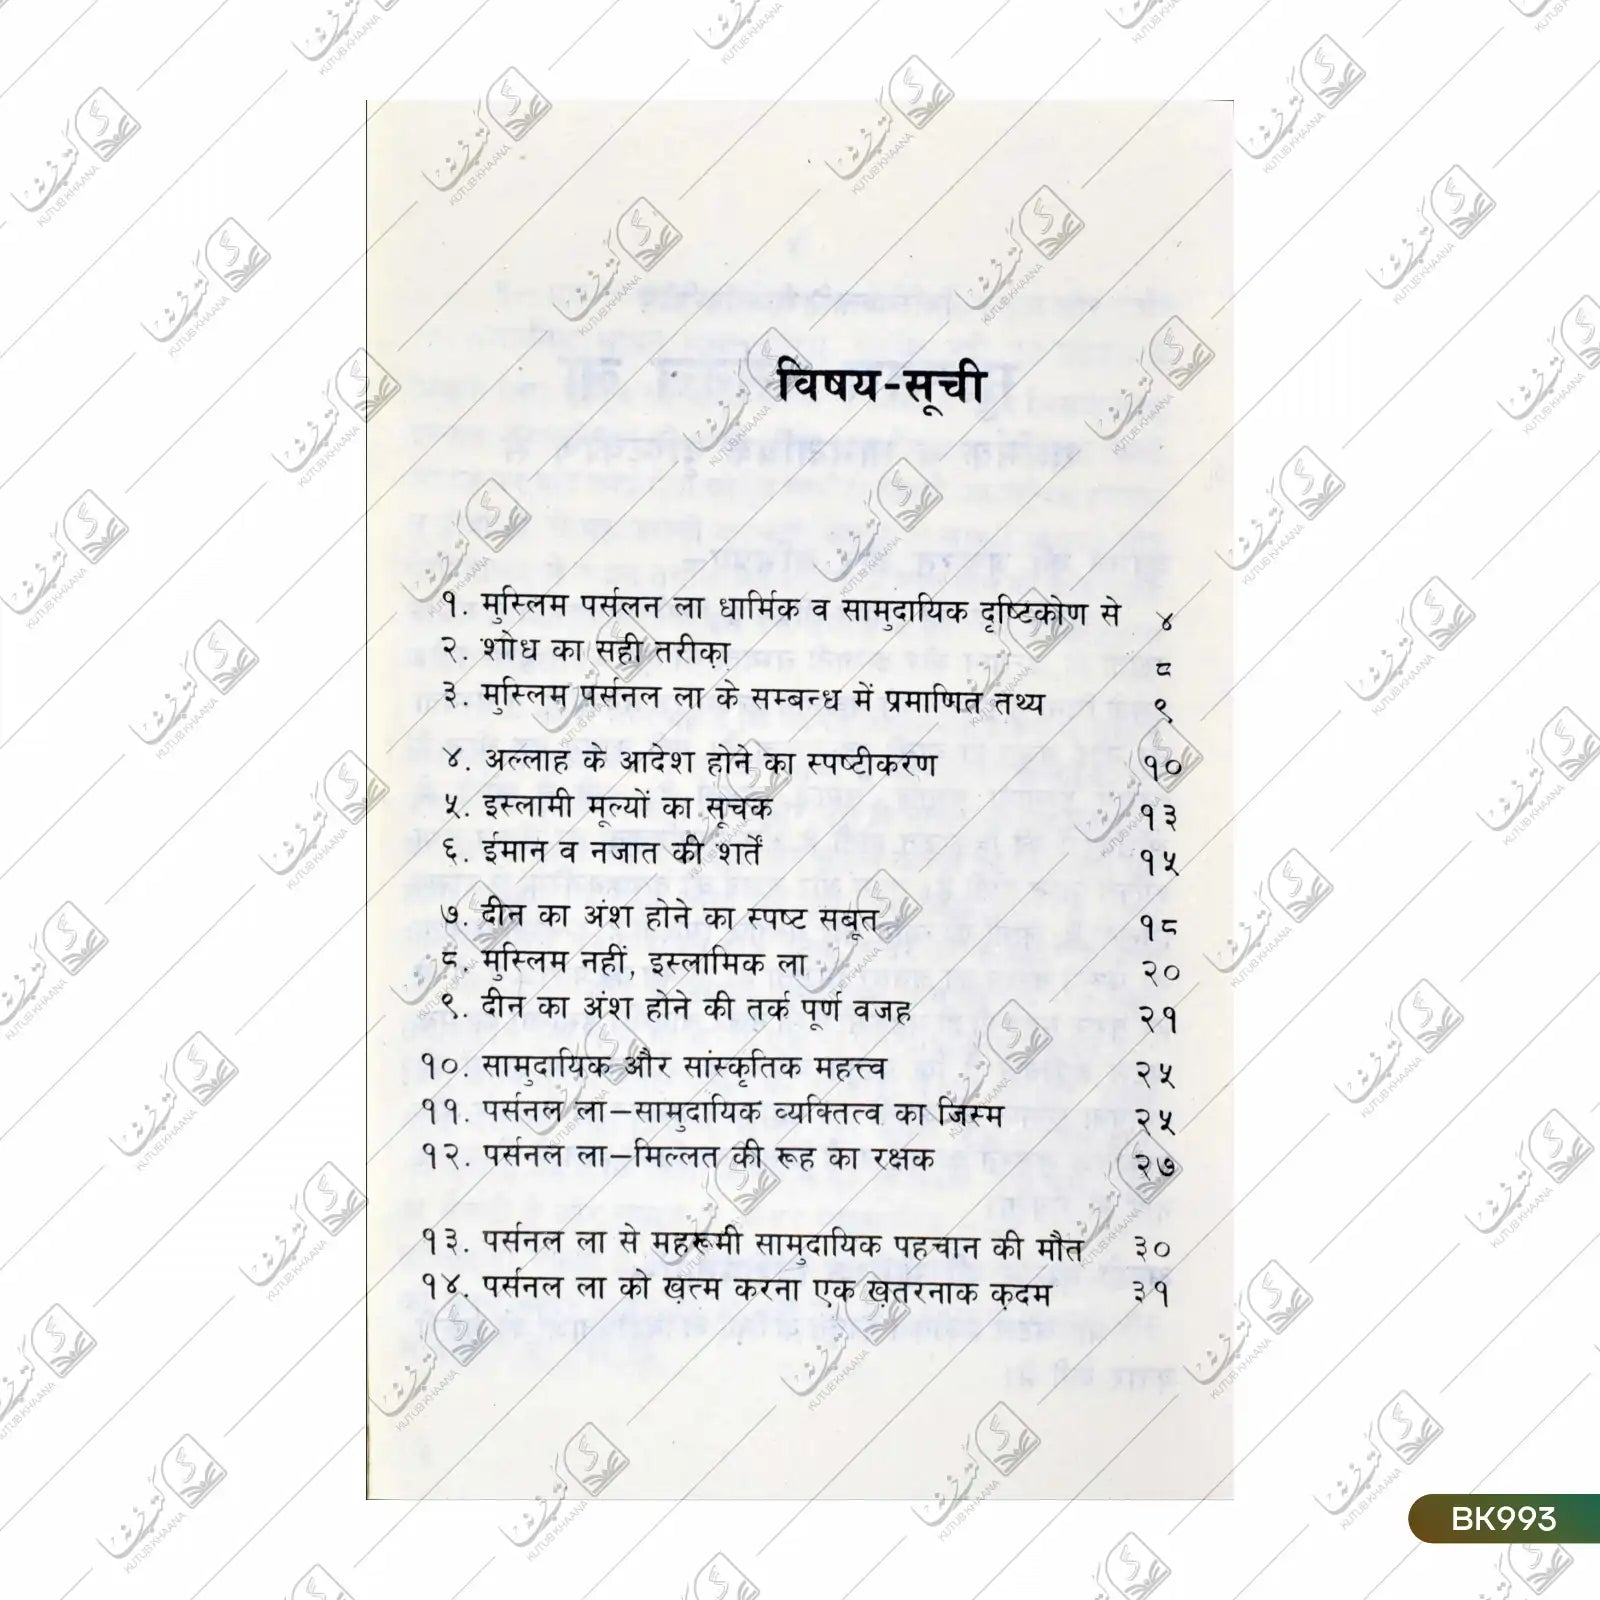 विषय-सूची
१. मुस्लिम पर्सलन ला धार्मिक व सामुदायिक दृष्टिकोण से ४
२. शोध का सही तरीक़ा ८
३. मुस्लिम पर्सनल ला के सम्बन्ध में प्रमाणित तथ्य ९
४. अल्लाह के आदेश होने का स्पष्टीकरण १०
५. इस्लामी मूल्यों का सूचक १३
६. ईमान व नजात की शर्तें १५
७. दीन का अंश होने का स्पष्ट सबूत १८
८. मुस्लिम नहीं, इस्लामिक ला २०
९. दीन का अंश होने की तर्क पूर्ण वजह २१
१०. सामुदायिक और सांस्कृतिक महत्त्व २५
११. पर्सनल ला–सामुदायिक व्यक्तित्व का जिस्म २५
१२. पर्सनल ला–मिल्लत की रूह का रक्षक २७
१३. पर्सनल ला से महरूमी सामुदायिक पहचान की मौत ३०
१४. पर्सनल ला को ख़त्म करना एक ख़तरनाक क़दम ३१
BK993